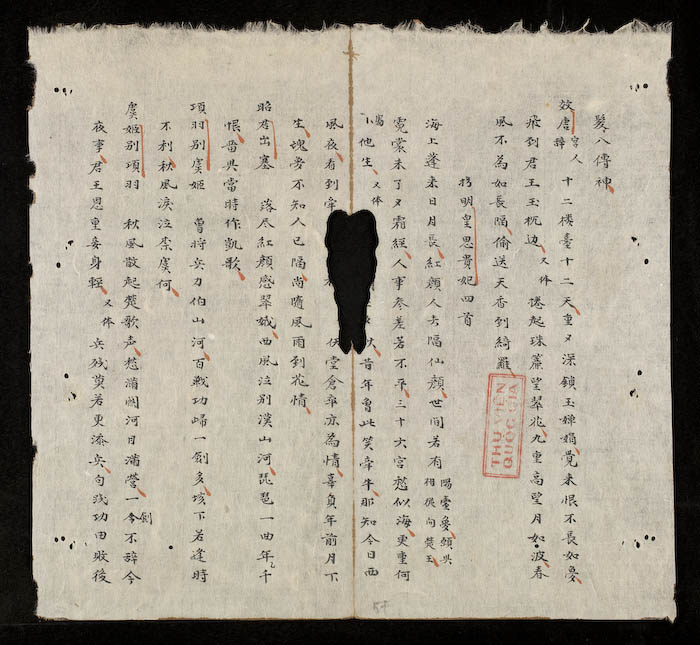 髮八傳神
效唐宮人辞 十二楼臺十二天重々深鎖玉嬋娟覺來恨不長如夢
飛到君王玉枕边 又体 捲起珠簾望翠 九重高望月如波春
風不為如長隔偷送天香到綺羅
拟明皇思貴妃四首
海上蓬来日月長紅顏人去隔仙顏世间若有 陽臺夢 相 向楚王
霓裳未了又霜 人事參差若不平三十六宮愁似海更重何
他生 又体 昔年曾此笑牵牛那知今日西
風夜看到牵 堂倉卒亦為情辜負年前月下
生魂夢不知人已隔尚隨風雨到花情
昭君出塞 落尽紅顏感翠娥曲風泣別漢山河琵琶一曲年々千
恨畨與當時作凱歌
項羽別虞姬 曾將兵刀伯山河百戰功歸一劍多垓下若逢時
不利秋風淚泣柰虞何
虞姬別項羽 秋風散起楚歌声愁滿関河月滿營一劍今不辞今
夜事君王恩重妾身輕 又体 兵残 若更添兵 功 由敗後
THƯ VIỆN
QUỐC GIA
54